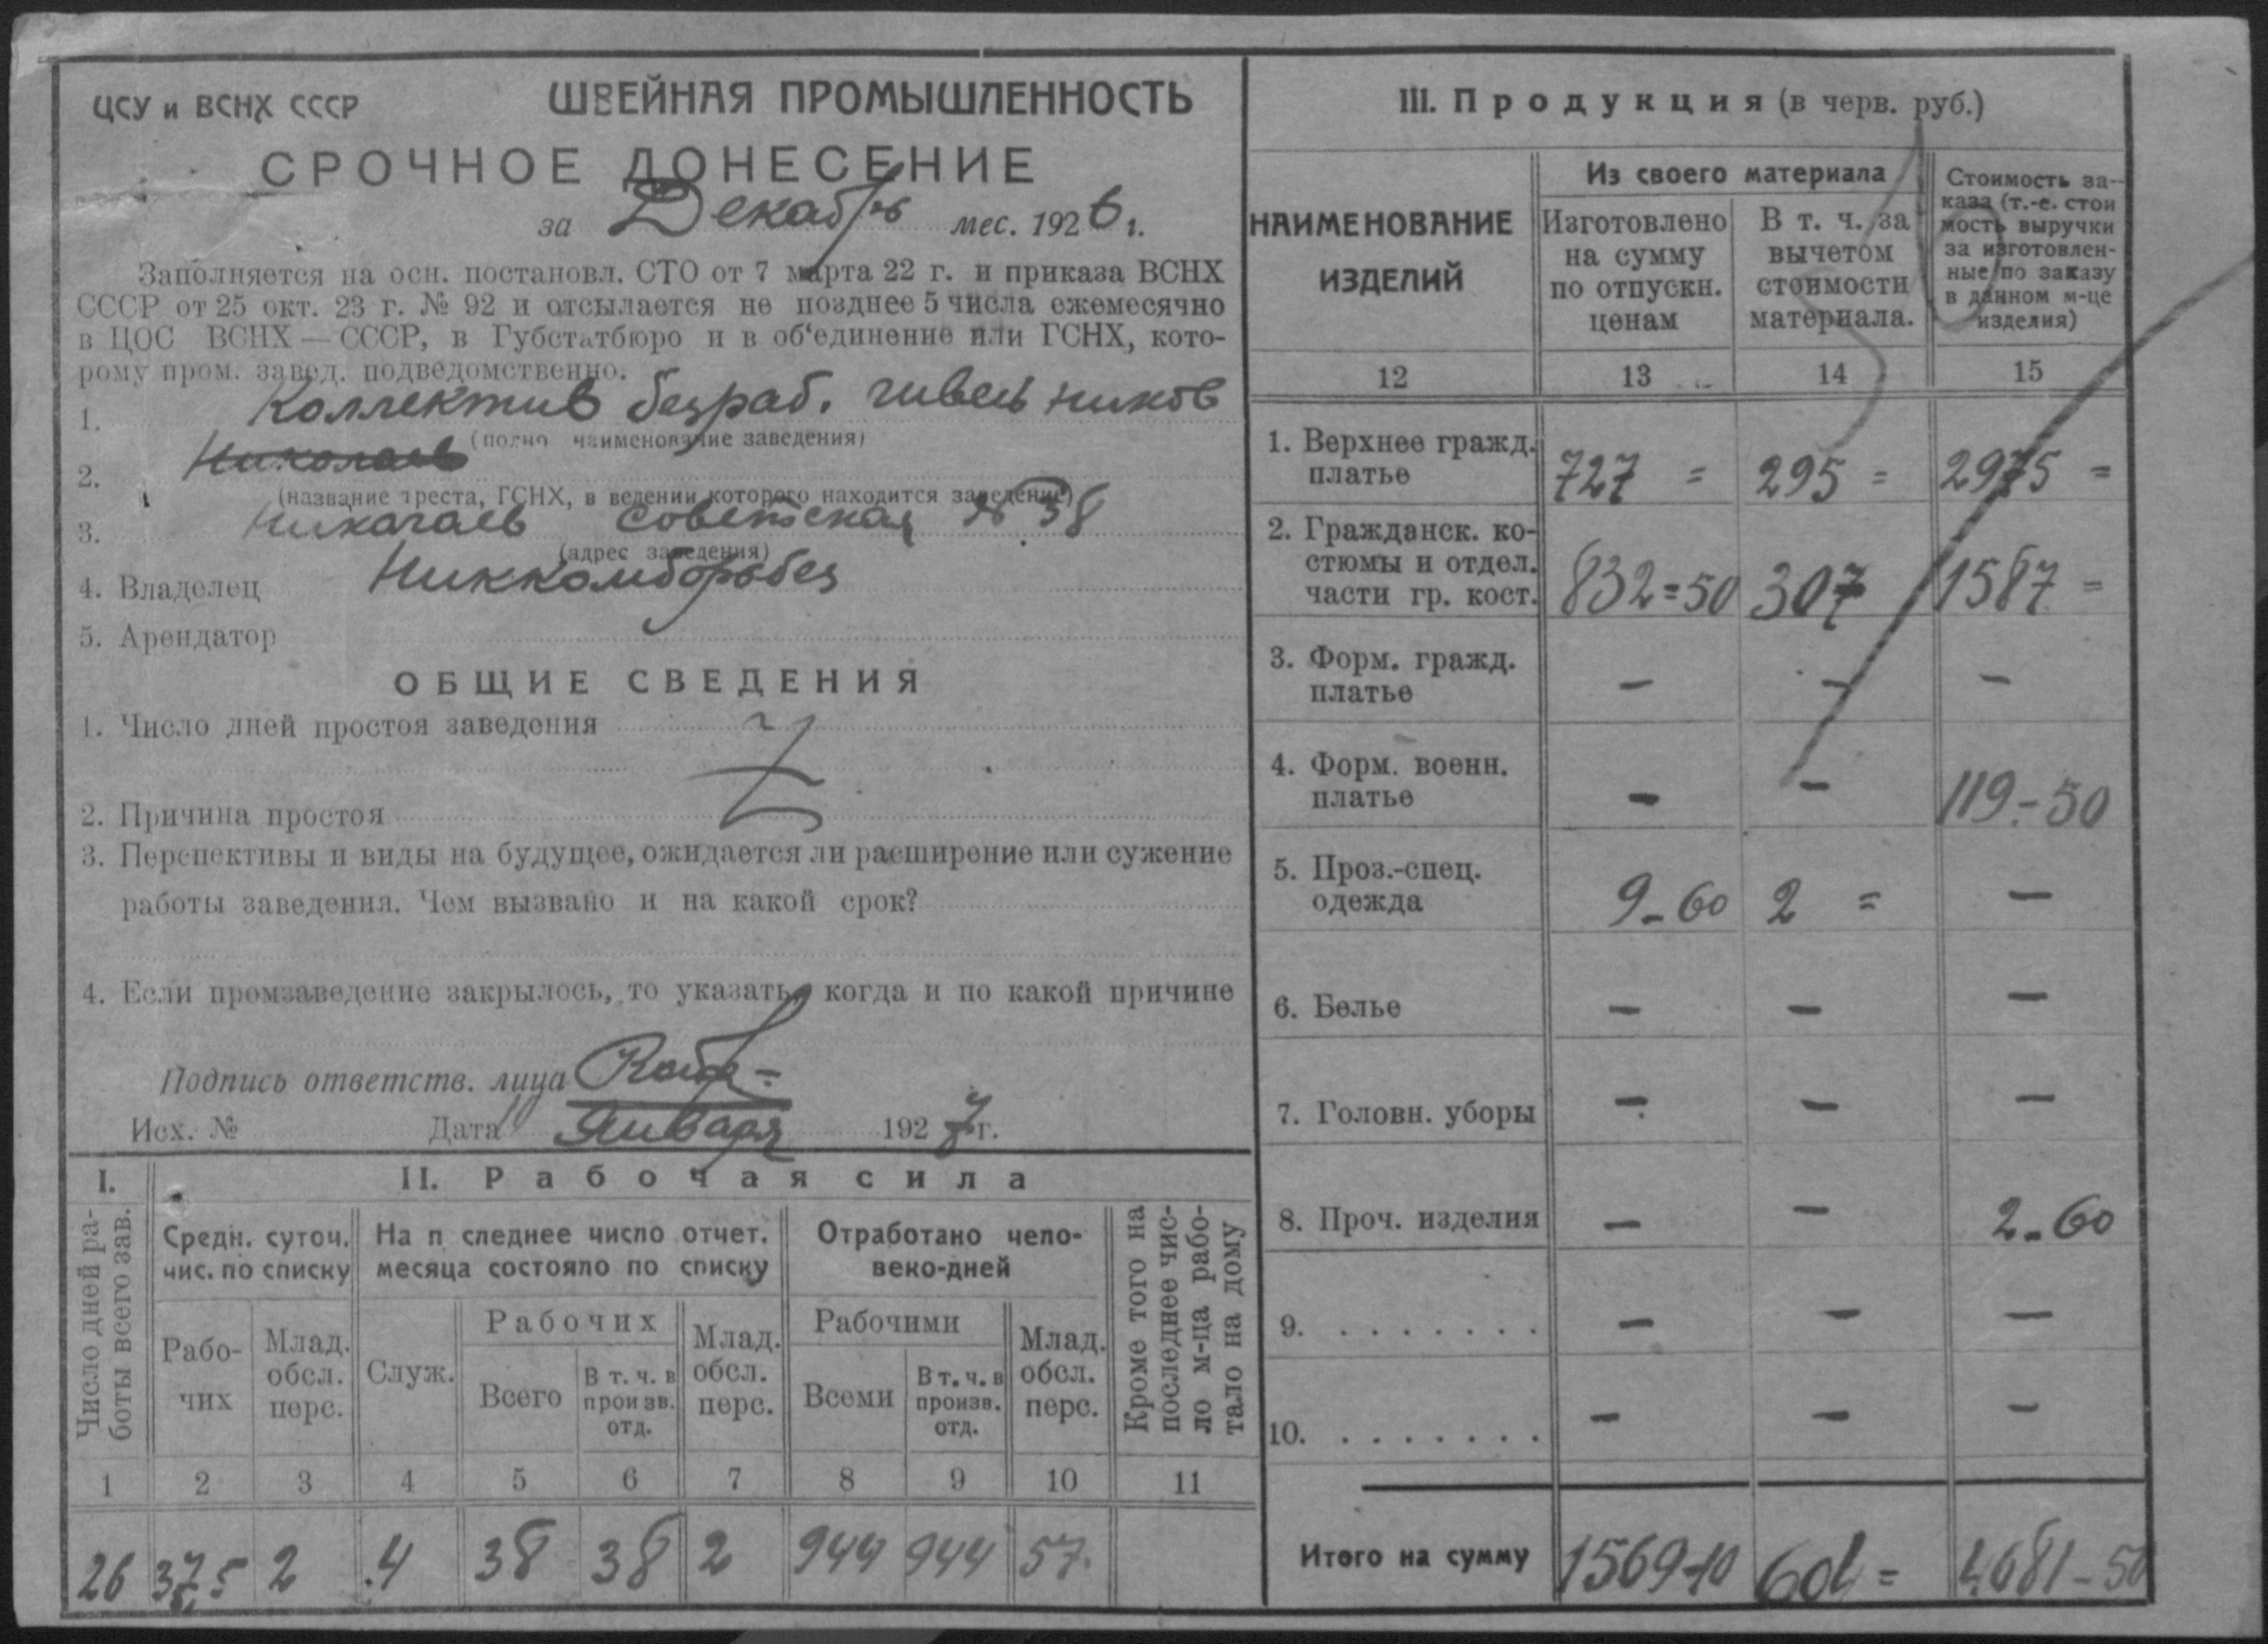 ЦСУ и ВСНХ СССР
ШВЕЙНАЯ ПРОМЫШЛЕННОСТЬ
СРОЧНОЕ ДОНЕСЕНИЕ
за Декабрь мес. 1926 г.
Заполняется на осн. постановл. СТО от 7 марта 22 г. и приказа ВСНХ
СССР от 25 окт. 23 г. № 92 и отсылается не позднее 5 числа ежемесячно
в ЦОС ВСНХ — СССР, в Губстатбюро и в об'единение или ГСНХ, кото-
рому пром. завед. подведомственно.
1. Коллектив безраб. швейников
(полно наименование заведения)
2. Николаев
(название треста, ГСНХ, в ведении которого находится заведение)
3. Николаев Советская № 38
(адрес заведения)
4. Владелец Никкомборьбез
5. Арендатор
ОБЩИЕ СВЕДЕНИЯ
1. Число дней простоя заведения
2. Причина простоя
3. Перспективы и виды на будущее, ожидается ли расширение или сужение
работы заведения. Чем вызвано и на какой срок?
4. Если промзаведение закрылось, то указать, когда и по какой причине
Подпись ответств. лица
Исх. № Дата Января 1927 г.
I. II. Рабочая сила
Число дней ра-
боты всего зав.
Средн. суточ.
чис. по списку
На п следнее число отчет.
месяца состояло по списку
Отработано чело-
веко-дней
Кроме того на
последнее чис-
ло м-ца рабо-
тало на дому
Рабо-
чих
Млад.
обсл.
перс.
Служ.
Рабочих
Всего
В т. ч. в
произв.
отд.
Млад.
обсл.
перс.
Рабочими
Всеми
В т. ч. в
произв.
отд.
Млад.
обсл.
перс.
1 2 3 4 5 6 7 8 9 10 11
26 37,5 2 4 38 38 2 944 944 57
III. Продукция (в черв. руб.)
НАИМЕНОВАНИЕ
ИЗДЕЛИЙ
Из своего материала
Изготовлено
на сумму
по отпускн.
ценам
В т. ч. за
вычетом
стоимости
материала.
Стоимость за-
каза (т.-е. стои
мость выручки
за изготовлен-
ные по заказу
в данном м-це
изделия)
12 13 14 15
1. Верхнее гражд.
платье 727 = 295 = 2975 =
2. Гражданск. ко-
стюмы и отдел.
части гр. кост. 832=50 307 1587 =
3. Форм. гражд.
платье — — —
4. Форм. военн.
платье — — 119.-50
5. Проз.-спец.
одежда 9-60 2 = —
6. Белье — — —
7. Головн. уборы — — —
8. Проч. изделия — — 2-60
9. . . . . . . . — — —
10. . . . . . . . — — —
Итого на сумму 1569-10 604 = 4681-50